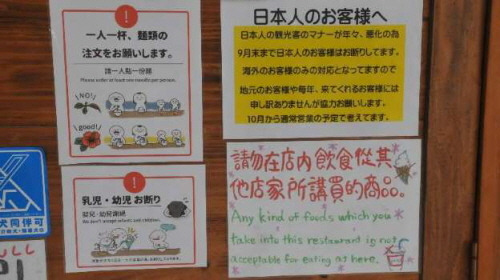 一人一杯、麺類の
注文をお願いします。
請一人點一份麵
Please order at least one noodle per person.
NO!
good!
乳児・幼児 お断り
嬰兒・幼兒謝絶
We don't accept infants and children.
犬同伴可
FULL
日本人のお客様へ
日本人の観光客のマナーが年々、悪化の為
9月末まで日本人のお客様はお断りしてます。
海外のお客様のみの対応となってますので
地元のお客様や毎年、来てくれてるお客様には
申し訳ありませんが協力お願いします。
10月から通常営業の予定で考えてます。
請勿在店内飲食從其
他店家所購買的商品。
Any kind of foods which you
take into this restaurant is not
acceptable for eating at here.